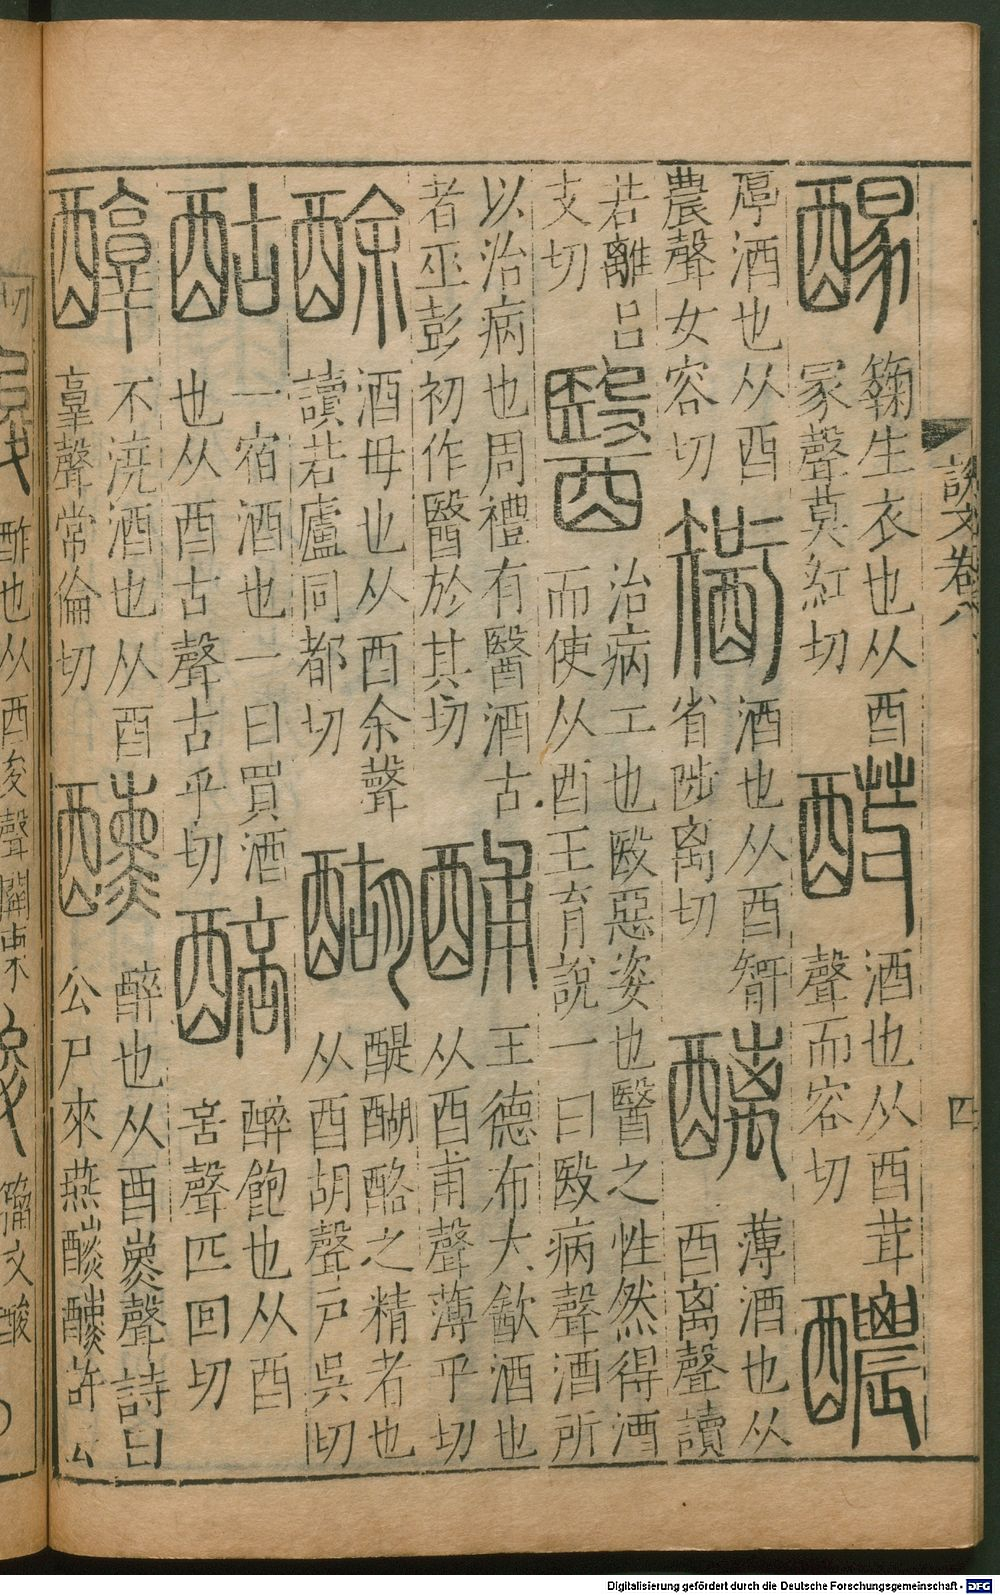 說文卷八
四
生衣也从酉
冡聲莫紅切
酒也从酉茸
聲而容切
醲
厚酒也从酉
農聲女容切
酒也从酉
省陟离切
醨
薄酒也从
酉离聲讀
若離呂
支切
醫
治病工也殹惡姿也醫之性然得酒
而使从酉王育說一曰殹病聲酒所
以治病也周禮有醫酒古
者巫彭初作醫於其切
酺
王德布大歠酒也
从酉甫聲薄乎切
酴
酒母也从酉余聲
讀若廬同都切
醐
醍醐酪之精者也
从酉胡聲戶吳切
酤
一宿酒也一曰買酒
也从酉古聲古乎切
醅
醉飽也从酉
咅聲匹回切
醇
不澆酒也从酉
𦎫聲常倫切
醺
醉也从酉熏聲詩曰
公尸來燕醺醺許云
切
酢也从酉夋聲關東
籀文酸
Digitalisierung gefördert durch die Deutsche Forschungsgemeinschaft - DFG